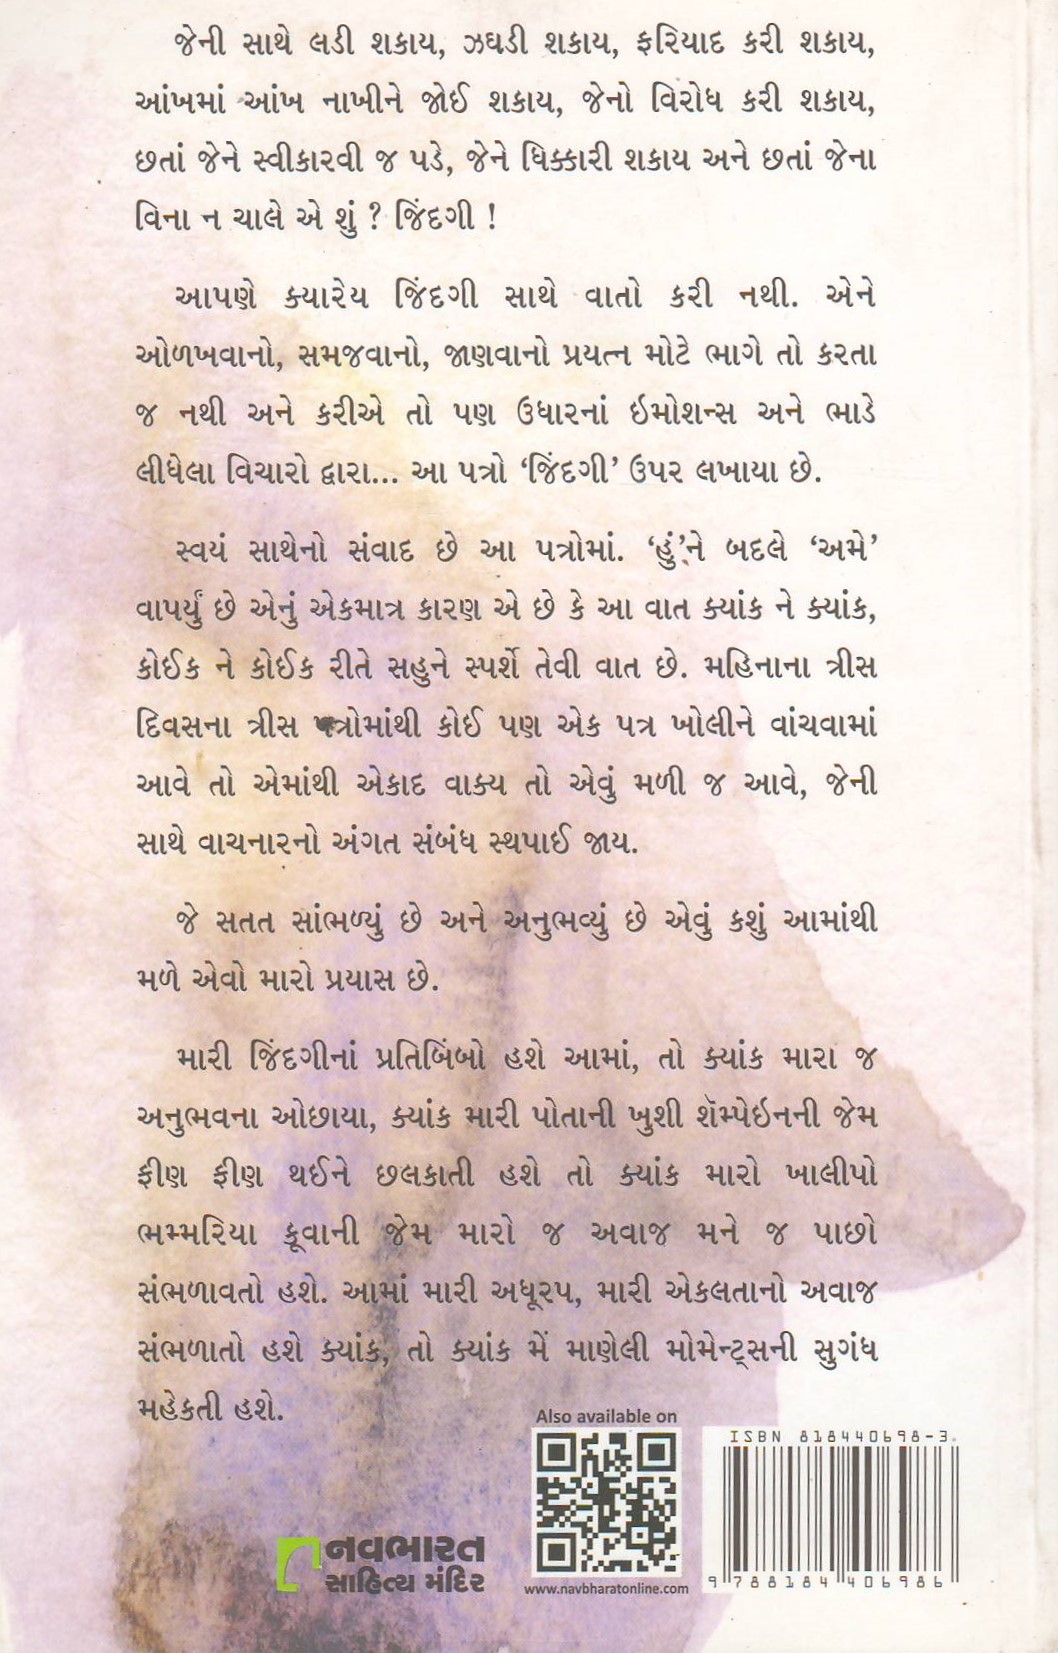 જેની સાથે લડી શકાય, ઝઘડી શકાય, ફરિયાદ કરી શકાય,
આંખમાં આંખ નાખીને જોઈ શકાય, જેનો વિરોધ કરી શકાય,
છતાં જેને સ્વીકારવી જ પડે, જેને ધિક્કારી શકાય અને છતાં જેના
વિના ન ચાલે એ શું ? જિંદગી !
આપણે ક્યારેય જિંદગી સાથે વાતો કરી નથી. એને
ઓળખવાનો, સમજવાનો, જાણવાનો પ્રયત્ન મોટે ભાગે તો કરતા
જ નથી અને કરીએ તો પણ ઉધારનાં ઇમોશન્સ અને ભાડે
લીધેલા વિચારો દ્વારા... આ પત્રો ‘જિંદગી’ ઉપર લખાયા છે.
સ્વયં સાથેનો સંવાદ છે આ પત્રોમાં. ‘હું’ને બદલે ‘અમે’
વાપર્યું છે એનું એકમાત્ર કારણ એ છે કે આ વાત ક્યાંક ને ક્યાંક,
કોઈક ને કોઈક રીતે સહુને સ્પર્શે તેવી વાત છે. મહિનાના ત્રીસ
દિવસના ત્રીસ પત્રોમાંથી કોઈ પણ એક પત્ર ખોલીને વાંચવામાં
આવે તો એમાંથી એકાદ વાક્ય તો એવું મળી જ આવે, જેની
સાથે વાચનારનો અંગત સંબંધ સ્થપાઈ જાય.
જે સતત સાંભળ્યું છે અને અનુભવ્યું છે એવું કશું આમાંથી
મળે એવો મારો પ્રયાસ છે.
મારી જિંદગીનાં પ્રતિબિંબો હશે આમાં, તો ક્યાંક મારા જ
અનુભવના ઓછાયા, ક્યાંક મારી પોતાની ખુશી શૅમ્પેઇનની જેમ
ફીણ ફીણ થઈને છલકાતી હશે તો ક્યાંક મારો ખાલીપો
ભમ્મરિયા કૂવાની જેમ મારો જ અવાજ મને જ પાછો
સંભળાવતો હશે. આમાં મારી અધૂરપ, મારી એકલતાનો અવાજ
સંભળાતો હશે ક્યાંક, તો ક્યાંક મેં માણેલી મોમેન્ટ્સની સુગંધ
મહેકતી હશે.
Also available on
ISBN 818440698-3
નવભારત
સાહિત્ય મંદિર
www.navbharatonline.com
9 788184 406986